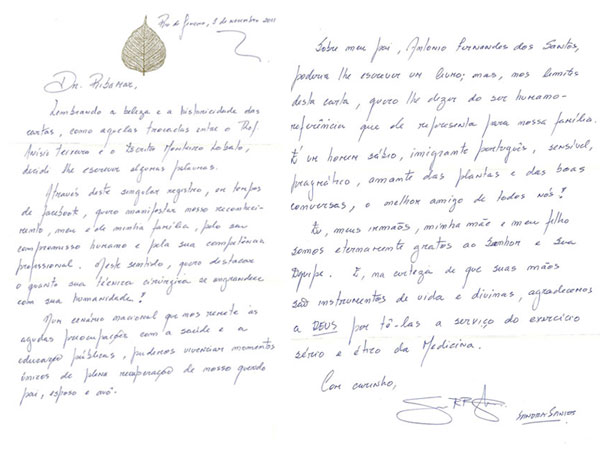 Rio de Janeiro, 8 de novembro 2011
Dr. Ribamar,
Lembrando a beleza e a historicidade das
cartas, como aquelas trocadas entre o Prof.
Anísio Teixeira e o Escritor Monteiro Lobato,
decidi lhe escrever algumas palavras.
Através deste singular registro, em tempos
de facebook, quero manifestar nosso reconheci-
mento, meu e de minha família, pelo seu
compromisso humano e pela sua competência
profissional. Neste sentido, quero destacar
o quanto sua técnica cirúrgica se engrandece
com sua humanidade!
Num cenário nacional que nos remete às
agudas preocupações com a saúde e a
educação públicas, pudemos vivenciar momentos
únicos de plena recuperação de nosso querido
pai, esposo e avô.
Sobre meu pai, Antonio Fernandes dos Santos,
poderia lhe escrever um livro; mas, nos limites
desta carta, quero lhe dizer do ser humano-
referência que ele representa para nossa família.
É um homem sábio, imigrante português, sensível,
pragmático, amante das plantas e das boas
conversas, o melhor amigo de todos nós!
Eu, meus irmãos, minha mãe e meu filho
somos eternamente gratos ao Senhor e sua
Equipe. E, na certeza de que suas mãos
são instrumentos de vida e divinas, agradecemos
a DEUS por tê-las a serviço do exercício
sério e ético da Medicina.
Com carinho,
SANDRA SANTOS